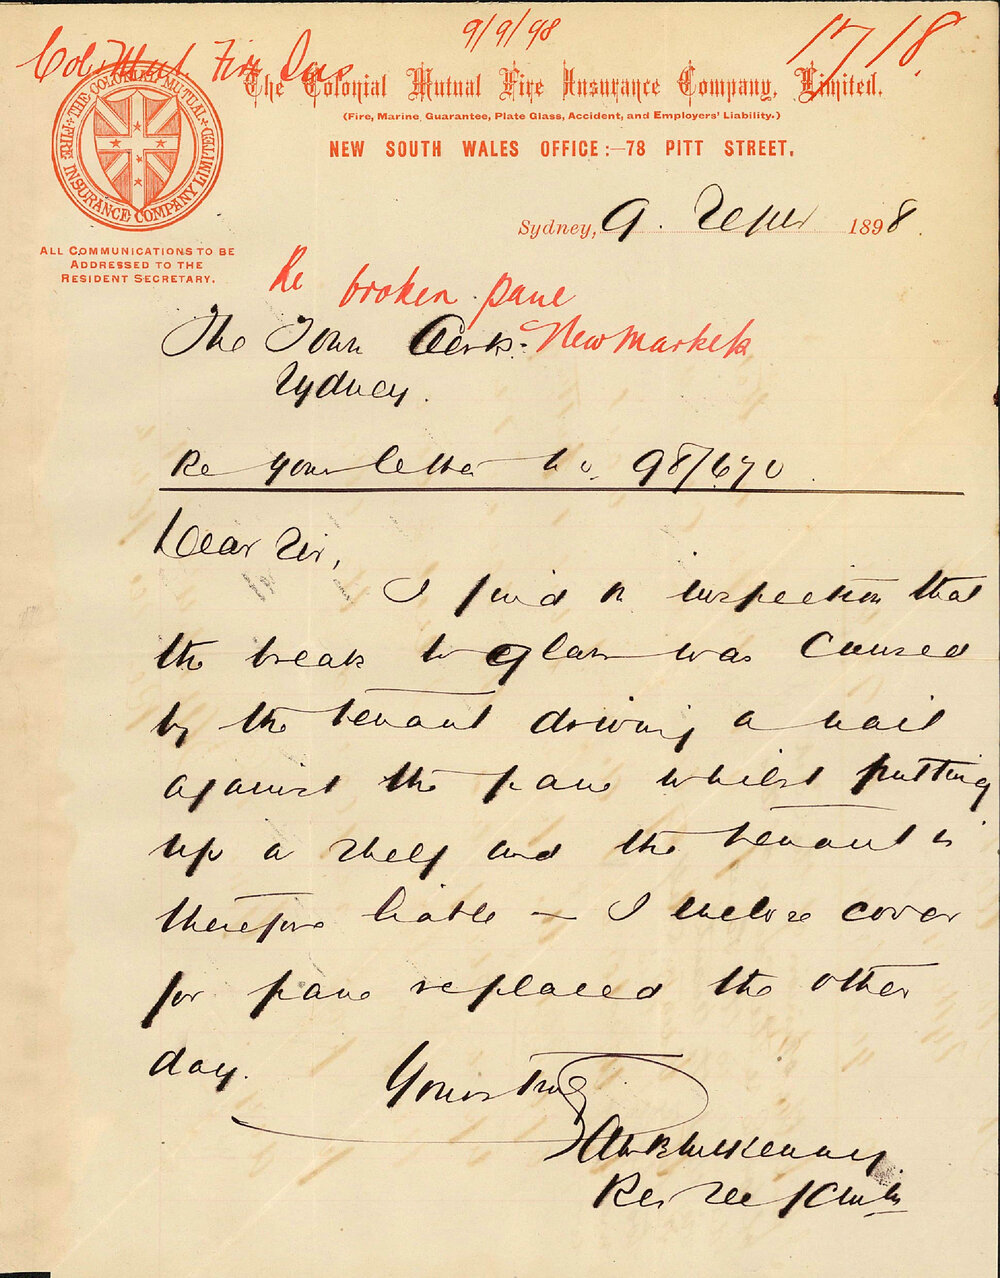 9/9/98
1718
Col. Mut. Fire Ins
THE COLONIAL MUTUAL FIRE INSURANCE COMPANY LIMITED
The Colonial Mutual Fire Insurance Company, Limited.
(Fire, Marine, Guarantee, Plate Glass, Accident, and Employers' Liability.)
NEW SOUTH WALES OFFICE:—78 PITT STREET.
Sydney, 9. Septr 1898.
ALL COMMUNICATIONS TO BE
ADDRESSED TO THE
RESIDENT SECRETARY.
Re broken pane
New Markets
The Town Clerk.
Sydney.
Re your letter no. 98/670
Dear Sir,
I find on inspection that
the break to glass was caused
by the tenant driving a nail
against the pane whilst putting
up a shelf and the tenant is
therefore liable — I enclose cover
for pane replaced the other
day.
Yours truly
Res Sec